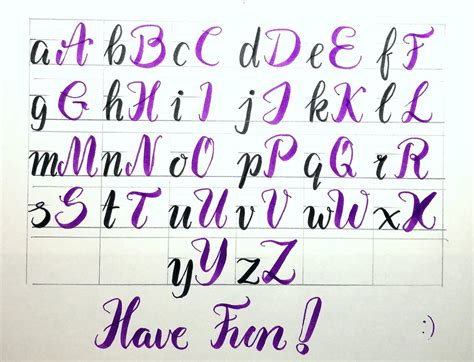 aA bB cC dD eE fF
gG hH iI jJ kK lL
mM nN oO pP qQ rR
sS tT uU vV wW xX
yY zZ
Have Fun!
:)